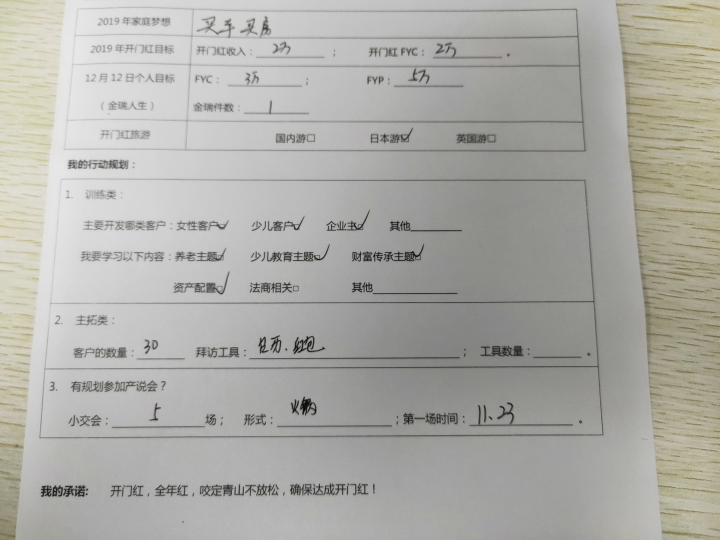 2019年家庭梦想 买车买房
2019年开门红目标 开门红收入：2万； 开门红FYC：2万。
12月12日个人目标 FYC：3万； FYP：5万
（金瑞人生） 金瑞件数：1
开门红旅游 国内游□ 日本游☑ 英国游□
我的行动规划：
1. 训练类：
主要开发哪类客户：女性客户☑ 少儿客户☑ 企业主☑ 其他______
我要学习以下内容：养老主题☑ 少儿教育主题☑ 财富传承主题☑
资产配置☑ 法商相关□ 其他______
2. 主拓类：
客户的数量：30 拜访工具：台历、红包； 工具数量：______。
3. 有规划参加产说会？
小交会：5场； 形式：火锅；第一场时间：11.23。
我的承诺： 开门红，全年红，咬定青山不放松，确保达成开门红！